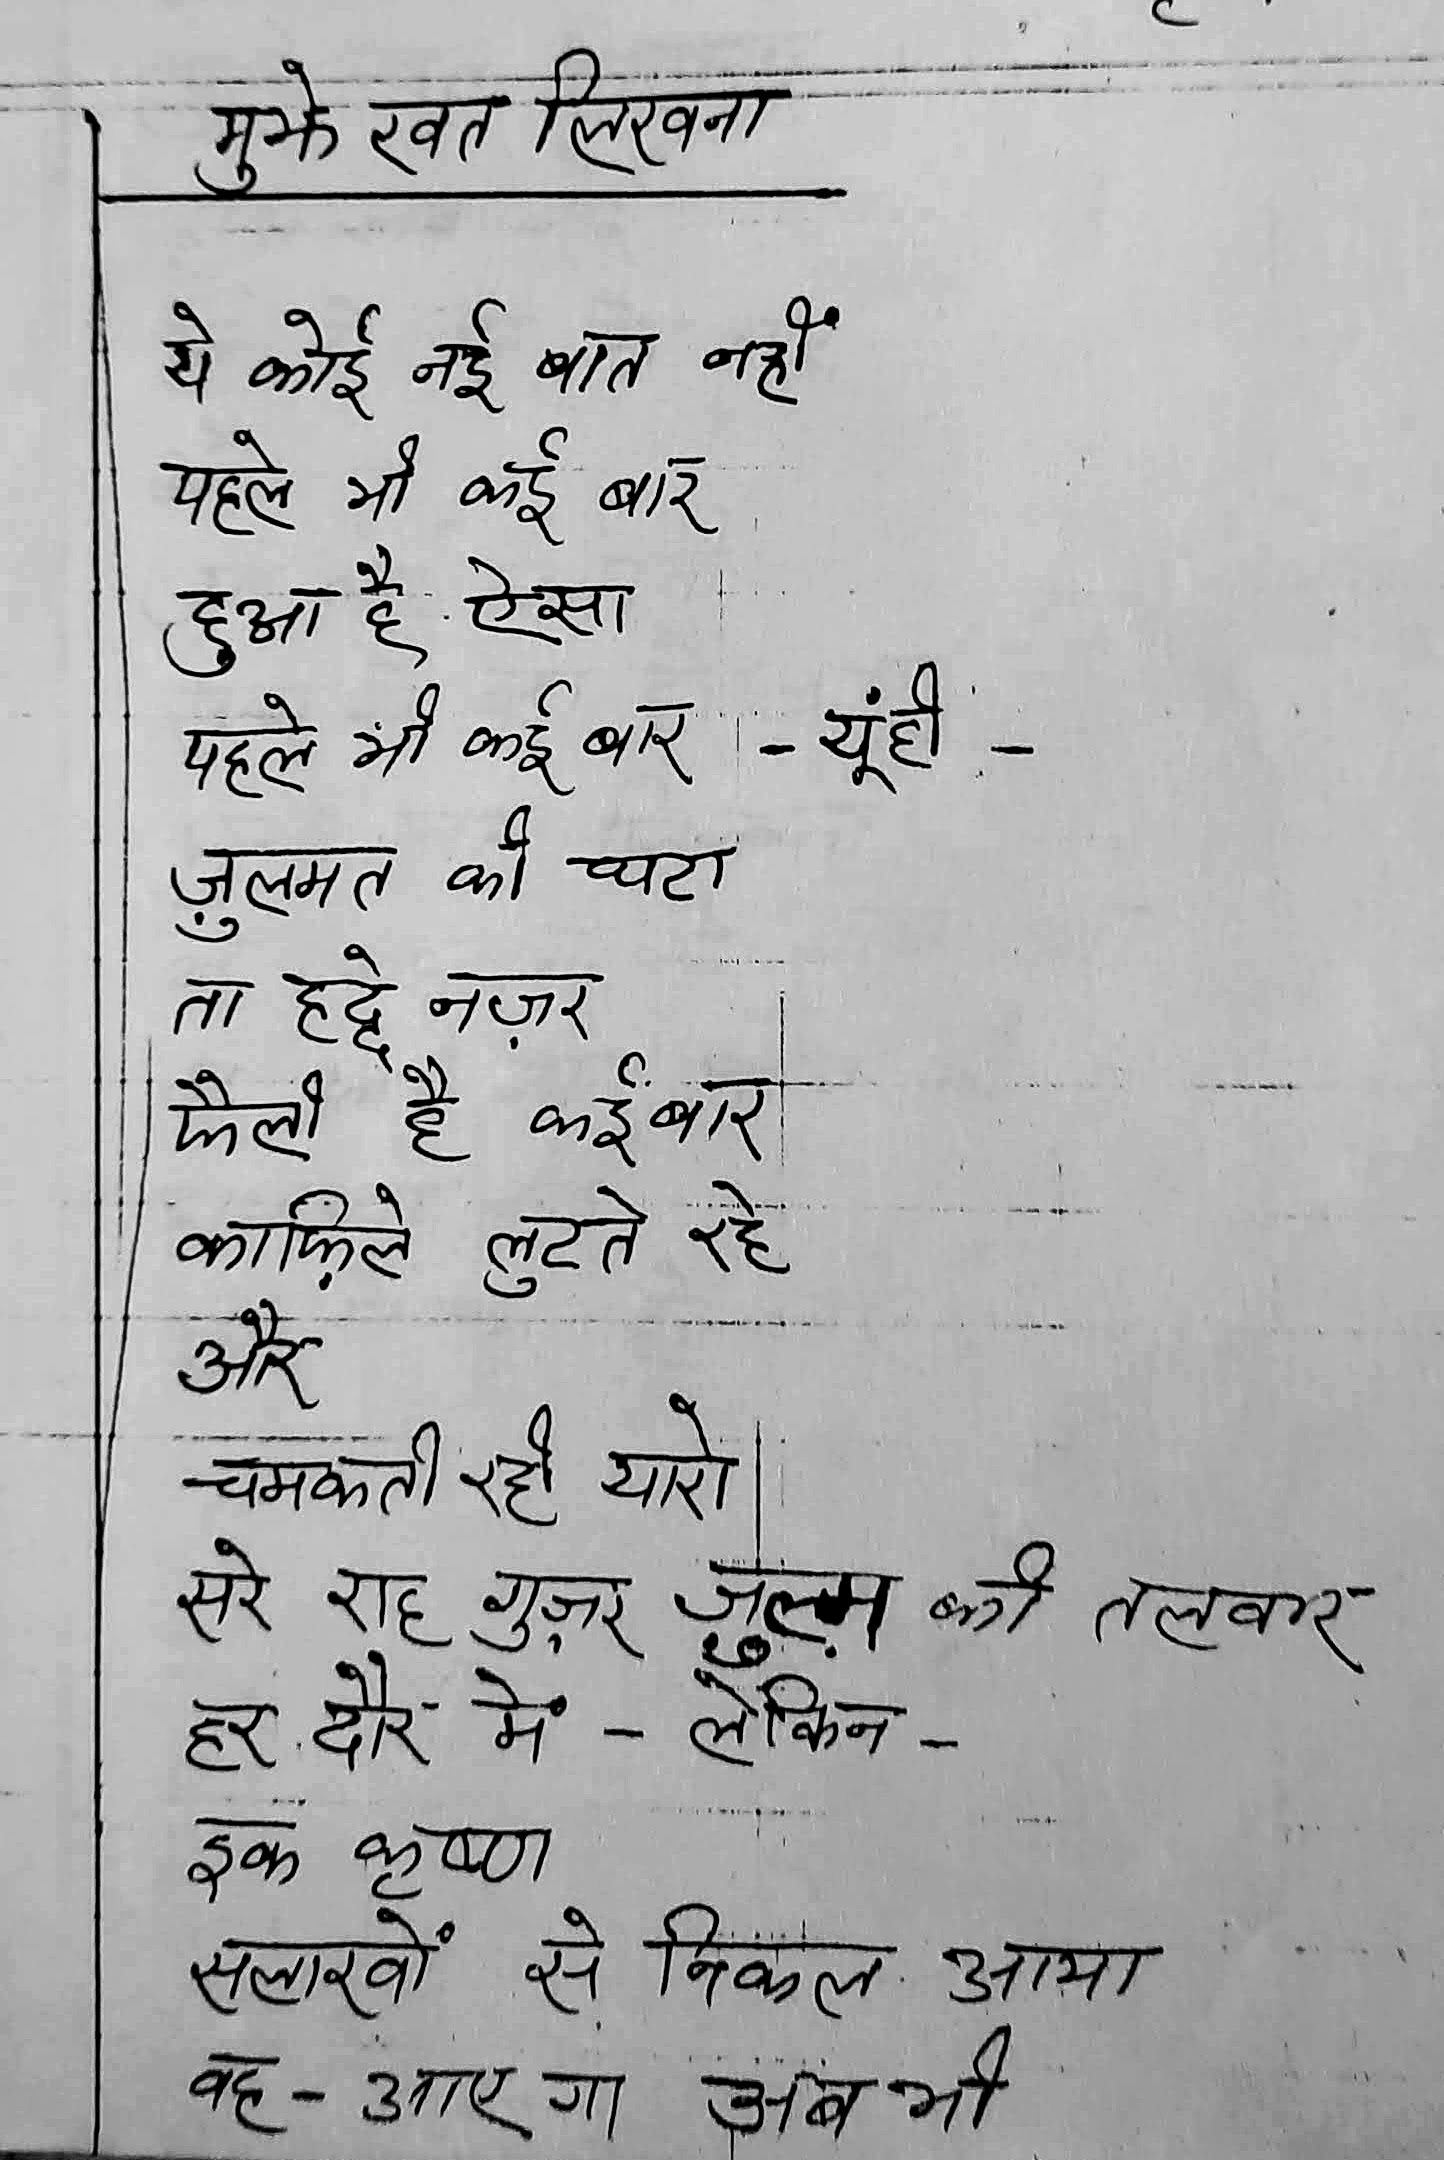 मुझे खत लिखना
ये कोई नई बात नहीं
पहले भी कई बार
हुआ है ऐसा
पहले भी कई बार - यूंही -
ज़ुलमत की घटा
ता हद्दे नज़र
फैली है कई बार
काफ़िले लुटते रहे
और
चमकती रही यारो
सरे राह गुज़र ज़ुल्म की तलवार
हर दौर में - लेकिन -
इक कृष्ण
सलाखों से निकल आया
वह - आए गा अब भी